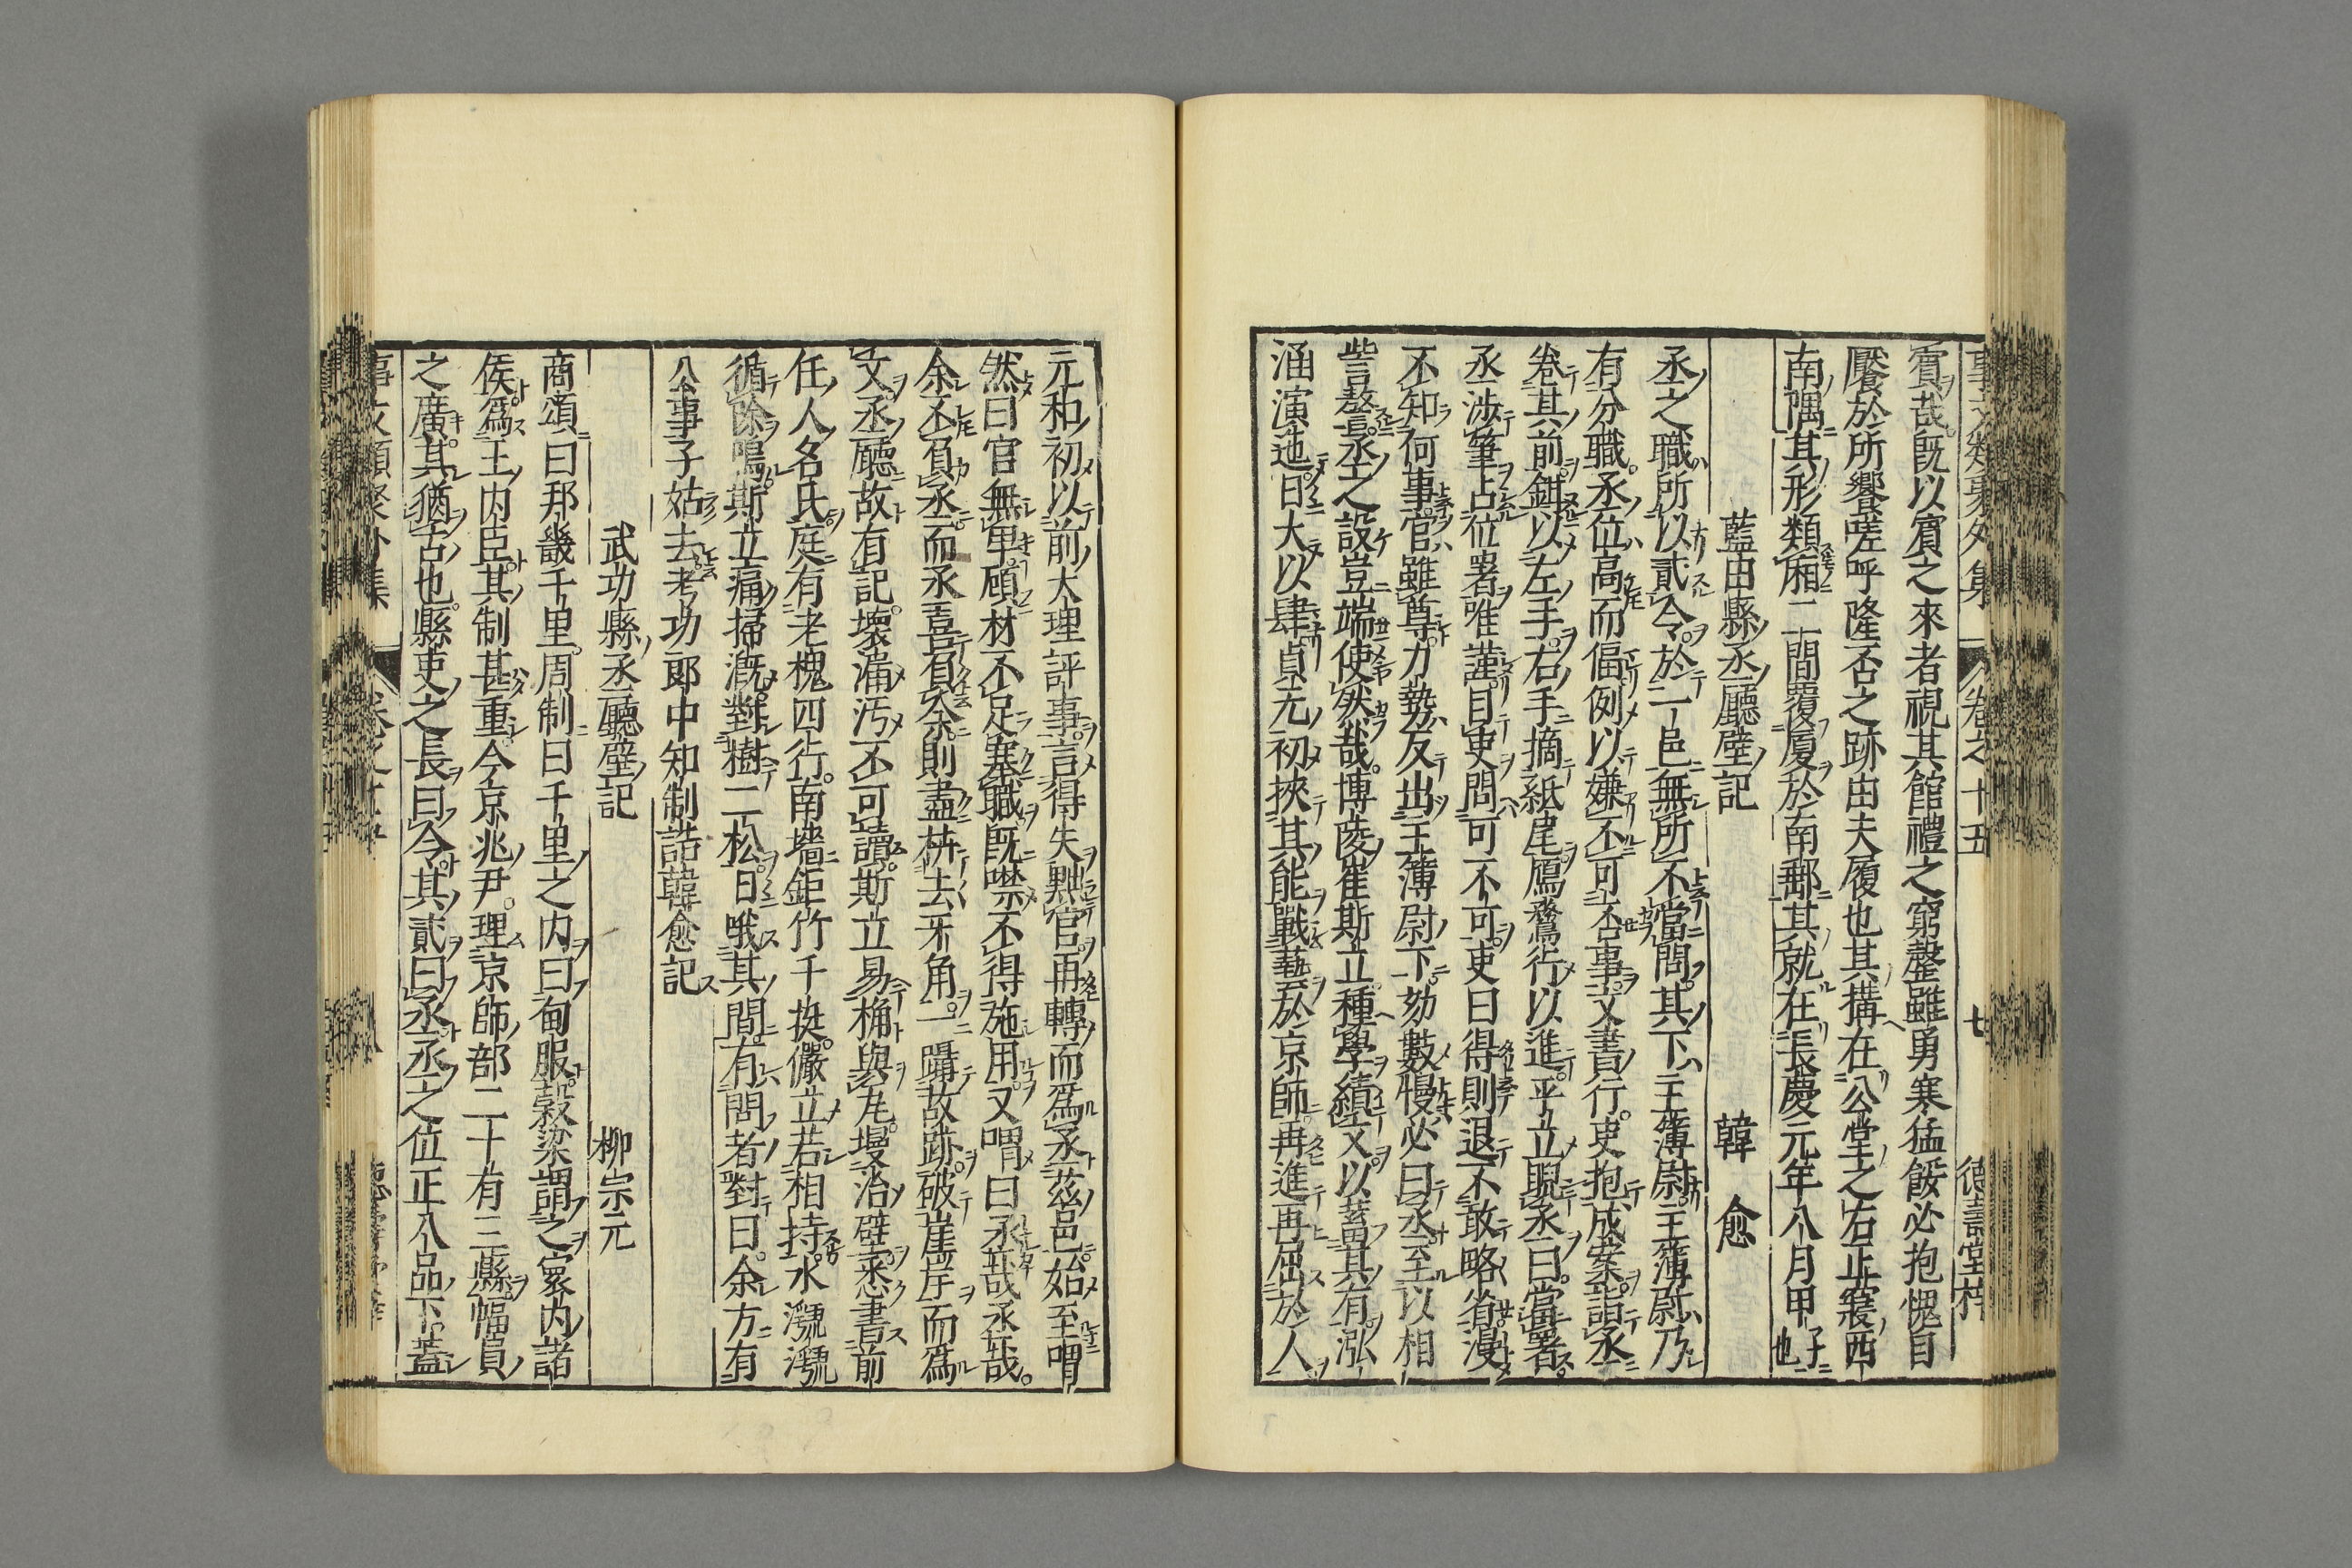 事文類聚外集 卷之十五 廿 德壽堂梓
賓哉既以賓之來者視其館禮之窮罄雖勇寒猛餒必抱愧自
饜於所饗嗟呼隆否之跡由夫履也其搆在公堂之右止裴西
南隅其形類厢二間覆厦於南鄠其就在長慶元年八月甲子也
藍田縣丞廳壁記 韓愈
丞之職所以貳令於一邑無所不當問其下主簿尉主簿尉乃
有分職丞位高而偪例以嫌不可否事文書行吏抱成案詣丞
卷其前鉗以左手右手摘紙尾鴈鶩行以進平立睨丞曰當署
丞涉筆占位署唯謹目吏問可不可吏曰得則退不敢略省漫
不知何事官雖尊力勢反出主簿尉下諺數慢必曰丞至以相
訾謷丞之設豈端使然哉博陵崔斯立種學績文以蓄其有泓
涵演迤日大以肆貞元初挾其能戰藝於京師再進再屈於人
元和初以前大理評事言得失黜官再轉而爲丞茲邑始至喟
然曰官無卑顧材不足塞職既噤不得施用又喟曰丞哉丞哉
余不負丞而丞喜負余則盡枿去牙角一躡故跡破崖岸而爲
文丞廳故有記壞漏汚不可讀斯立易桷與瓦墁治壁悉書前
任人名氏庭有老槐四行南墻鉅竹千挺儼立若相持水㶁㶁
循除鳴斯立痛掃漑對樹二松日哦其間有問者對曰余方有
公事子姑去考功郎中知制誥韓愈記
武功縣丞廳壁記 柳宗元
商頌曰邦畿千里周制曰千里之内曰甸服穀梁謂之寰内諸
侯爲王内臣其制甚重今京兆尹理京師部二十有三縣幅員
之廣其猶古也縣吏之長曰令其貳曰丞丞之位正八品下蓋
事文類聚外集 卷之十五